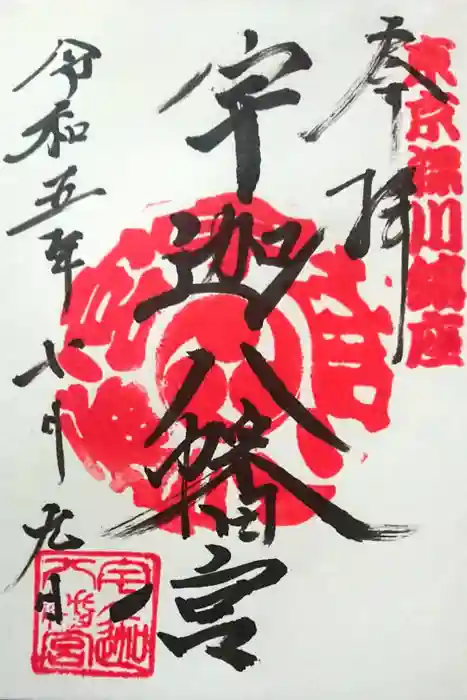 東京深川鎮座
奉拝
宇迦八幡宮
令和五年七月九日
宇迦八幡宮